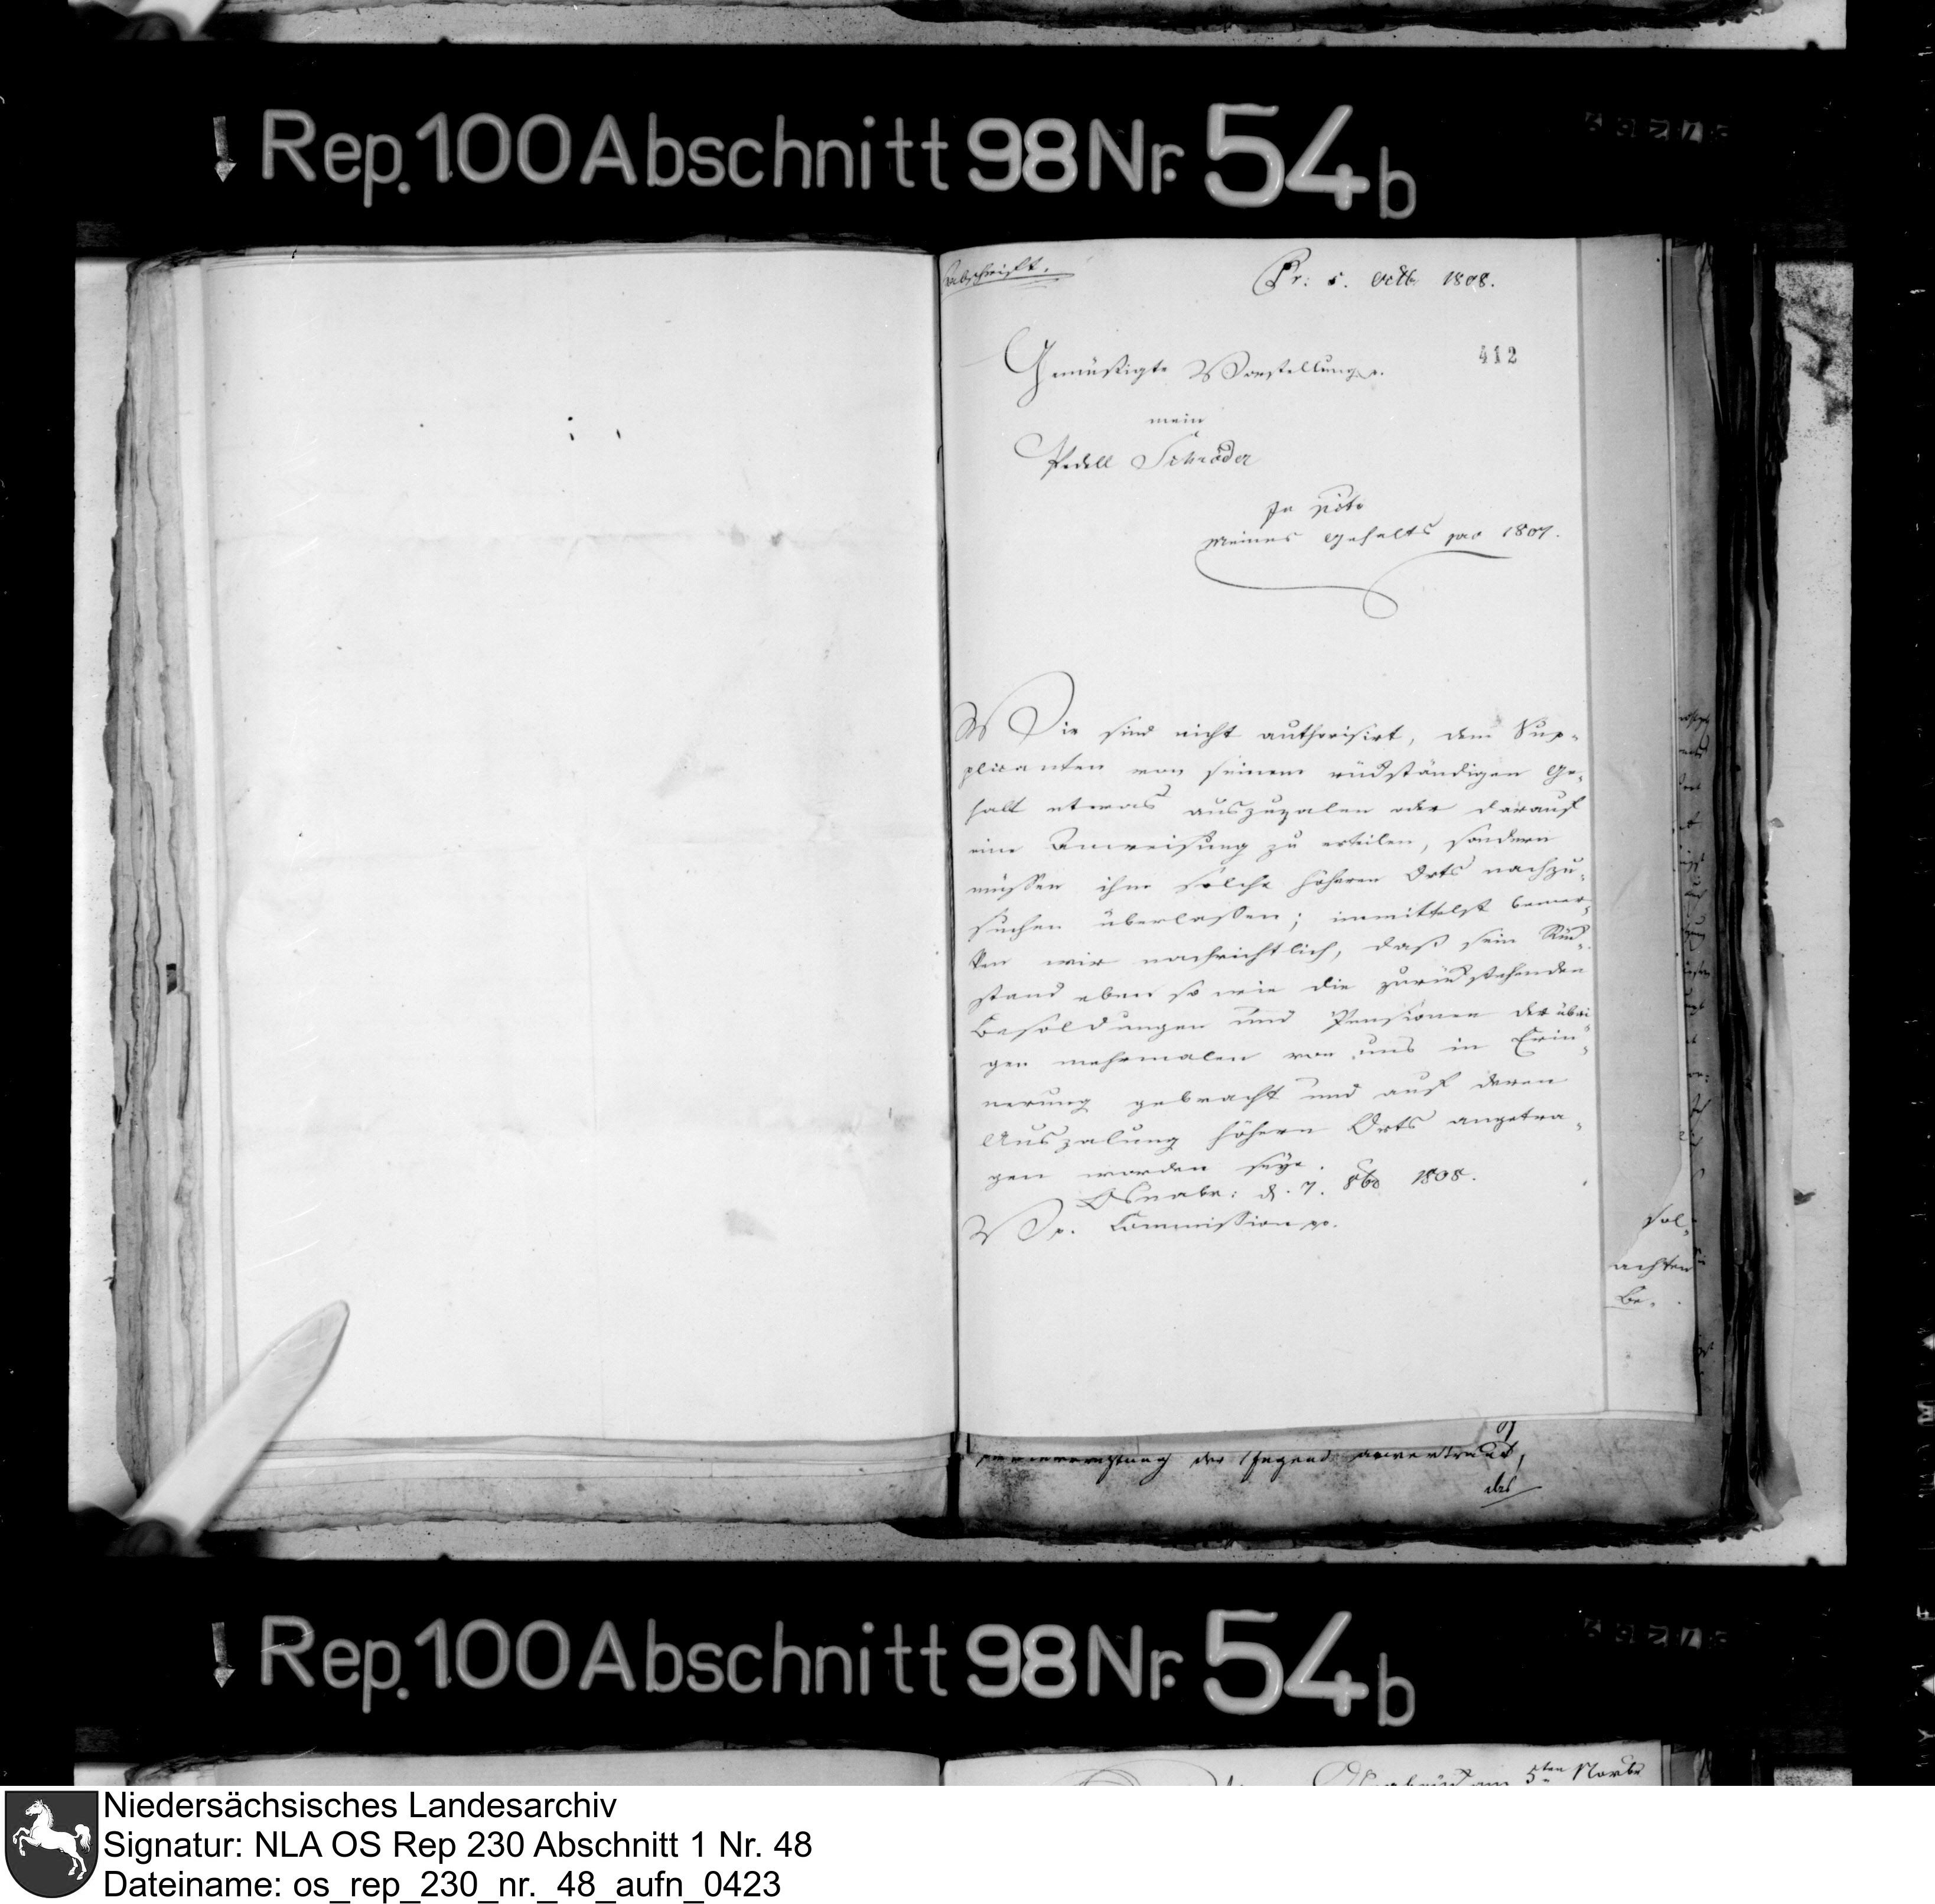 Rep. 100 Abschnitt 98 Nr. 54b
Abschrift.
Pr: 5. Octb. 1808.
412
Gemüßigte Vorstellung p.
mein
Pedell Schröder
In pcto
meines Gehalts pro 1807.
Wir sind nicht authorisirt, dem Sup-
plicanten von seinem rückständigen Ge-
halt etwas auszuzalen oder darauf
eine Anweisung zu erteilen, sondern
müssen ihm solche höheren Orts nachzu-
suchen überlassen; inmittelst bemer-
ken wir nachrichtlich, daß sein Rück-
stand eben so wie die zurückstehenden
Besoldungen und Pensionen der übri-
gen mehrmalen von uns in Erin-
nerung gebracht und auf deren
Auszalung höhern Orts angetra-
gen worden seye.
Osnabr: d. 7. 8br 1808.
Commission
sol-
achten
Be-
der Jugend anvertraut,
das
Rep. 100 Abschnitt 98 Nr. 54b
5ten Novbr
Niedersächsisches Landesarchiv
Signatur: NLA OS Rep 230 Abschnitt 1 Nr. 48
Dateiname: os_rep_230_nr._48_aufn_0423